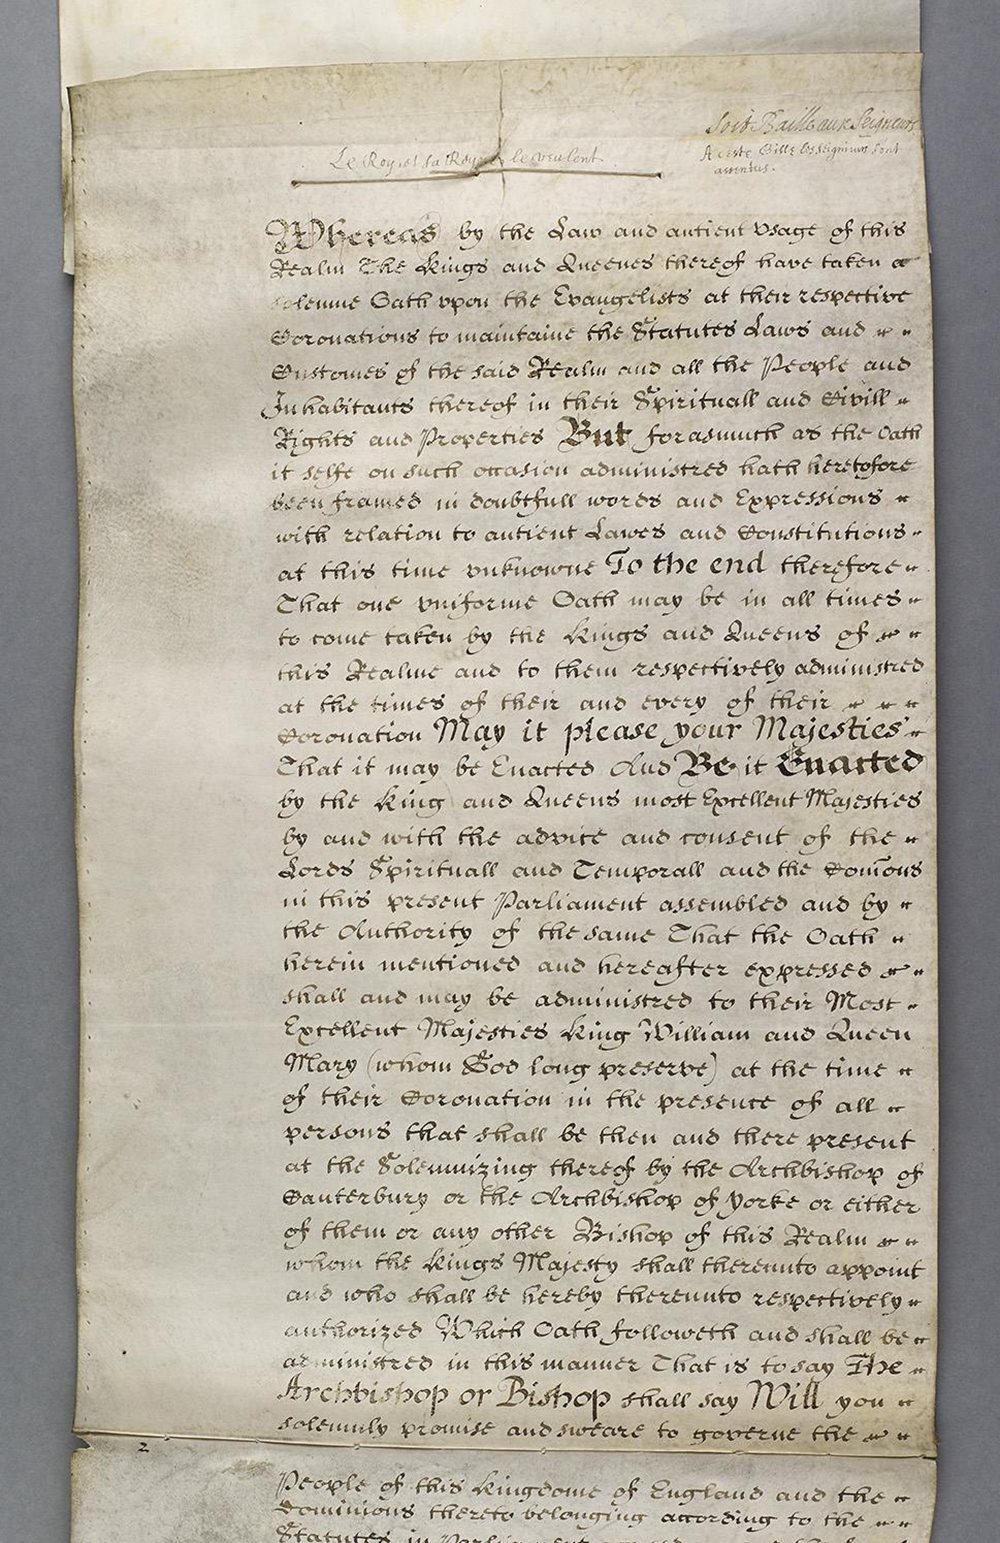 Soit Baille aux Seigneurs
A ceste Bille les Seigneurs sont
assentus.
Le Roy et la Royne le veulent
Whereas by the Law and antient vsage of this
Realm The Kings and Queenes thereof have taken a
solemne Oath vpon the Evangelists at their respective
Coronations to maintaine the Statutes Laws and
Customes of the said Realm and all the People and
Inhabitants thereof in their Spirituall and Civill
Rights and Properties But forasmuch as the Oath
it selfe on such occasion administred hath heretofore
been framed in doubtfull words and Expressions
with relation to antient Lawes and Constitutions
at this time vnknowne To the end therefore
That one vniforme Oath may be in all times
to come taken by the Kings and Queens of
this Realme and to them respectively administred
at the times of their and every of their
Coronation May it please your Majesties
That it may be Enacted And Be it Enacted
by the King and Queens most Excellent Majesties
by and with the advice and consent of the
Lords Spirituall and Temporall and the Com̅ons
in this present Parliament assembled and by
the Authority of the same That the Oath
herein mentioned and hereafter expressed
shall and may be administred to their Most
Excellent Majesties King William and Queen
Mary (whom God long preserve) at the time
of their Coronation in the presence of all
persons that shall be then and there present
at the Solemnizing thereof by the Archbishop of
Canterbury or the Archbishop of Yorke or either
of them or any other Bishop of this Realm
whom the Kings Majesty shall thereunto appoint
and who shall be hereby thereunto respectively
authorized Which Oath followeth and shall be
administred in this manner That is to say The
Archbishop or Bishop shall say Will you
solemnly promise and sweare to governe the
2
People of this Kingdome of England and the
Dominions thereto belonging according to the
Statutes in